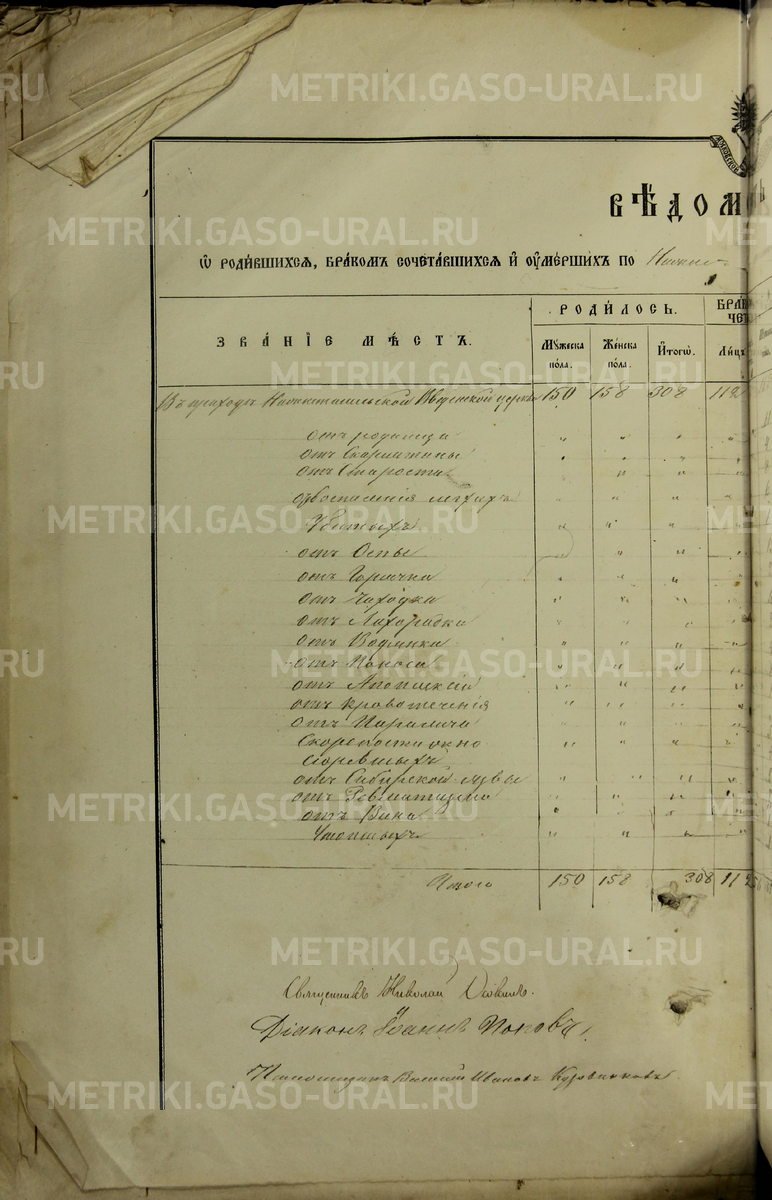 ВѢДОМ
Ѡ РОДИ́ВШИХСЯ, БРА́КОМЪ СОЧЕТА́ВШИХСЯ И҆ ОУ҆МЕ́РШИХЪ ПО Нижне-
ЗВА́НІЕ МѢ́СТЪ. РОДИ́ЛОСЬ. БРА
ЧЕТ
Мꙋ́жеска по́ла. Же́нска по́ла. И҆тогѡ̀. Ли́цъ
Въ приходѣ Нижнетагильской Введенской церкви 150 158 308 112
отъ родимца " " " " "
отъ Скарлатины " " " "
отъ Старости " " "
отъ воспаленія легкихъ " " " "
Убитыхъ " " " "
отъ Оспы " " "
отъ Горячки " " " "
отъ Чахотки " " " "
отъ Лихорадки " " " "
отъ Водянки " " " "
отъ Поноса " " " "
отъ Апоплексіи " " " "
отъ кровотеченія " " " "
отъ Паралича " "
Скоропостижно " " " "
сгорѣвшихъ
отъ Сибирской язвы " " " "
отъ Ревматизма " " " "
отъ Вина " " " "
Утопшихъ " " " "
Итого 150 158 308 112
Священникъ Николай
Діаконъ Іоаннъ Поповъ.
Василій Ивановъ
METRIKI.GASO-URAL.RU